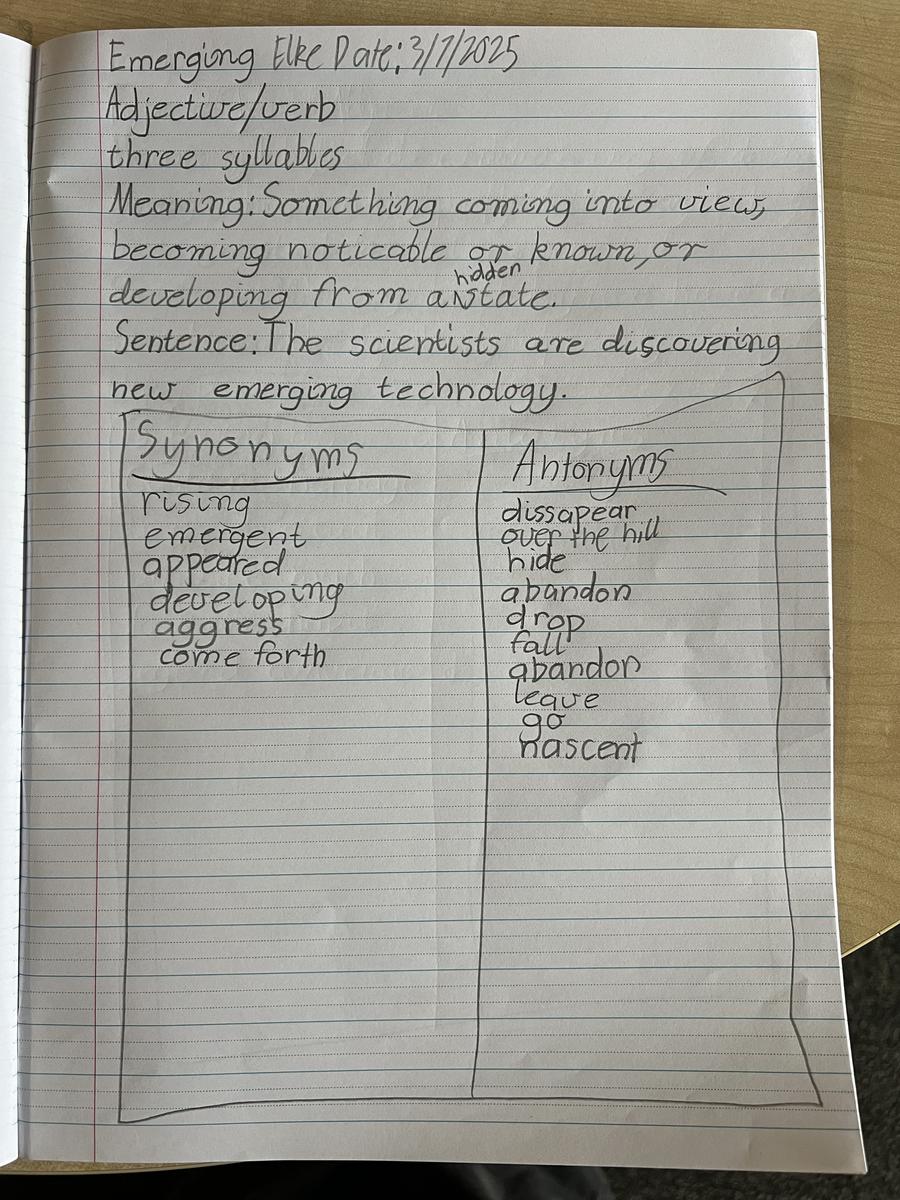 Emerging Elke Date: 3/7/2025
Adjective/verb
three syllables
Meaning: Something coming into view,
becoming noticable or known, or
hidden
developing from a state.
Sentence: The scientists are discovering
new emerging technology.
Synonyms
rising
emergent
appeared
developing
aggress
come forth
Antonyms
dissapear
over the hill
hide
abandon
drop
fall
abandon
leave
go
nascent